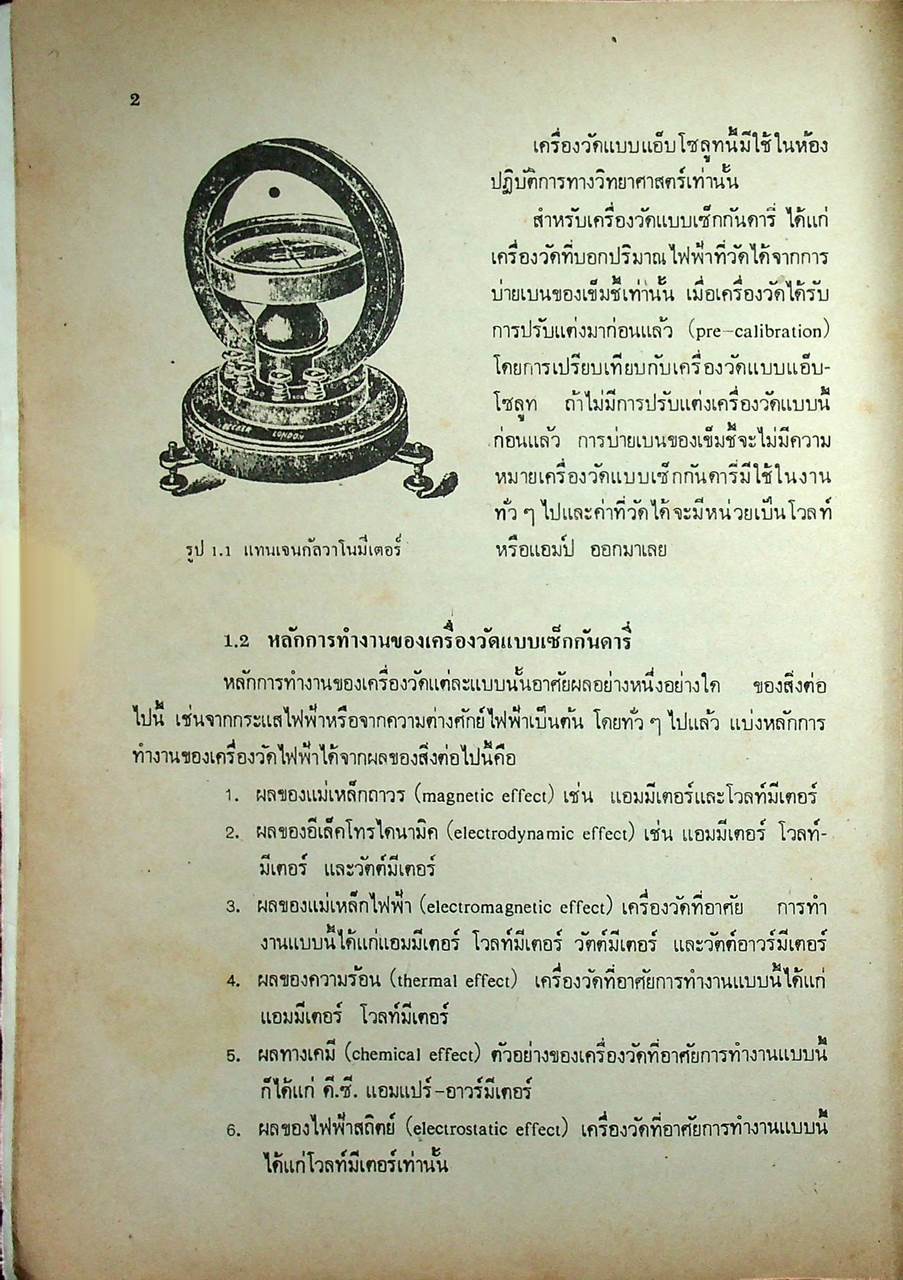 2
เครื่องวัดแบบแอ็บโซลูทนี้มีใช้ในห้อง
ปฏิบัติการทางวิทยาศาสตร์เท่านั้น
สำหรับเครื่องวัดแบบเซ็กกันดารี่ ได้แก่
เครื่องวัดที่บอกปริมาณไฟฟ้าที่วัดได้จากการ
บ่ายเบนของเข็มชี้เท่านั้น เมื่อเครื่องวัดได้รับ
การปรับแต่งมาก่อนแล้ว (pre-calibration)
โดยการเปรียบเทียบกับเครื่องวัดแบบแอ็บ-
โซลูท ถ้าไม่มีการปรับแต่งเครื่องวัดแบบนี้
ก่อนแล้ว การบ่ายเบนของเข็มชี้จะไม่มีความ
หมายเครื่องวัดแบบเซ็กกันดารี่มีใช้ในงาน
ทั่ว ๆ ไปและค่าที่วัดได้จะมีหน่วยเป็นโวลท์
หรือแอมป์ ออกมาเลย
LONDON
รูป 1.1 แทนเจนกัลวาโนมีเตอร์
1.2 หลักการทำงานของเครื่องวัดแบบเซ็กกันดารี่
หลักการทำงานของเครื่องวัดแต่ละแบบนั้นอาศัยผลอย่างหนึ่งอย่างใด ของสิ่งต่อ
ไปนี้ เช่นจากกระแสไฟฟ้าหรือจากความต่างศักย์ไฟฟ้าเป็นต้น โดยทั่ว ๆ ไปแล้ว แบ่งหลักการ
ทำงานของเครื่องวัดไฟฟ้าได้จากผลของสิ่งต่อไปนี้คือ
1. ผลของแม่เหล็กถาวร (magnetic effect) เช่น แอมมีเตอร์และโวลท์มีเตอร์
2. ผลของอีเล็คโทรไดนามิค (electrodynamic effect) เช่น แอมมีเตอร์ โวลท์-
มีเตอร์ และวัตต์มีเตอร์
3. ผลของแม่เหล็กไฟฟ้า (electromagnetic effect) เครื่องวัดที่อาศัย การทำ
งานแบบนี้ได้แก่แอมมีเตอร์ โวลท์มีเตอร์ วัตต์มีเตอร์ และวัตต์อาวร์มีเตอร์
4. ผลของความร้อน (thermal effect) เครื่องวัดที่อาศัยการทำงานแบบนี้ได้แก่
แอมมีเตอร์ โวลท์มีเตอร์
5. ผลทางเคมี (chemical effect) ตัวอย่างของเครื่องวัดที่อาศัยการทำงานแบบนี้
ก็ได้แก่ ดี.ซี. แอมแปร์-อาวร์มีเตอร์
6. ผลของไฟฟ้าสถิตย์ (electrostatic effect) เครื่องวัดที่อาศัยการทำงานแบบนี้
ได้แก่โวลท์มีเตอร์เท่านั้น